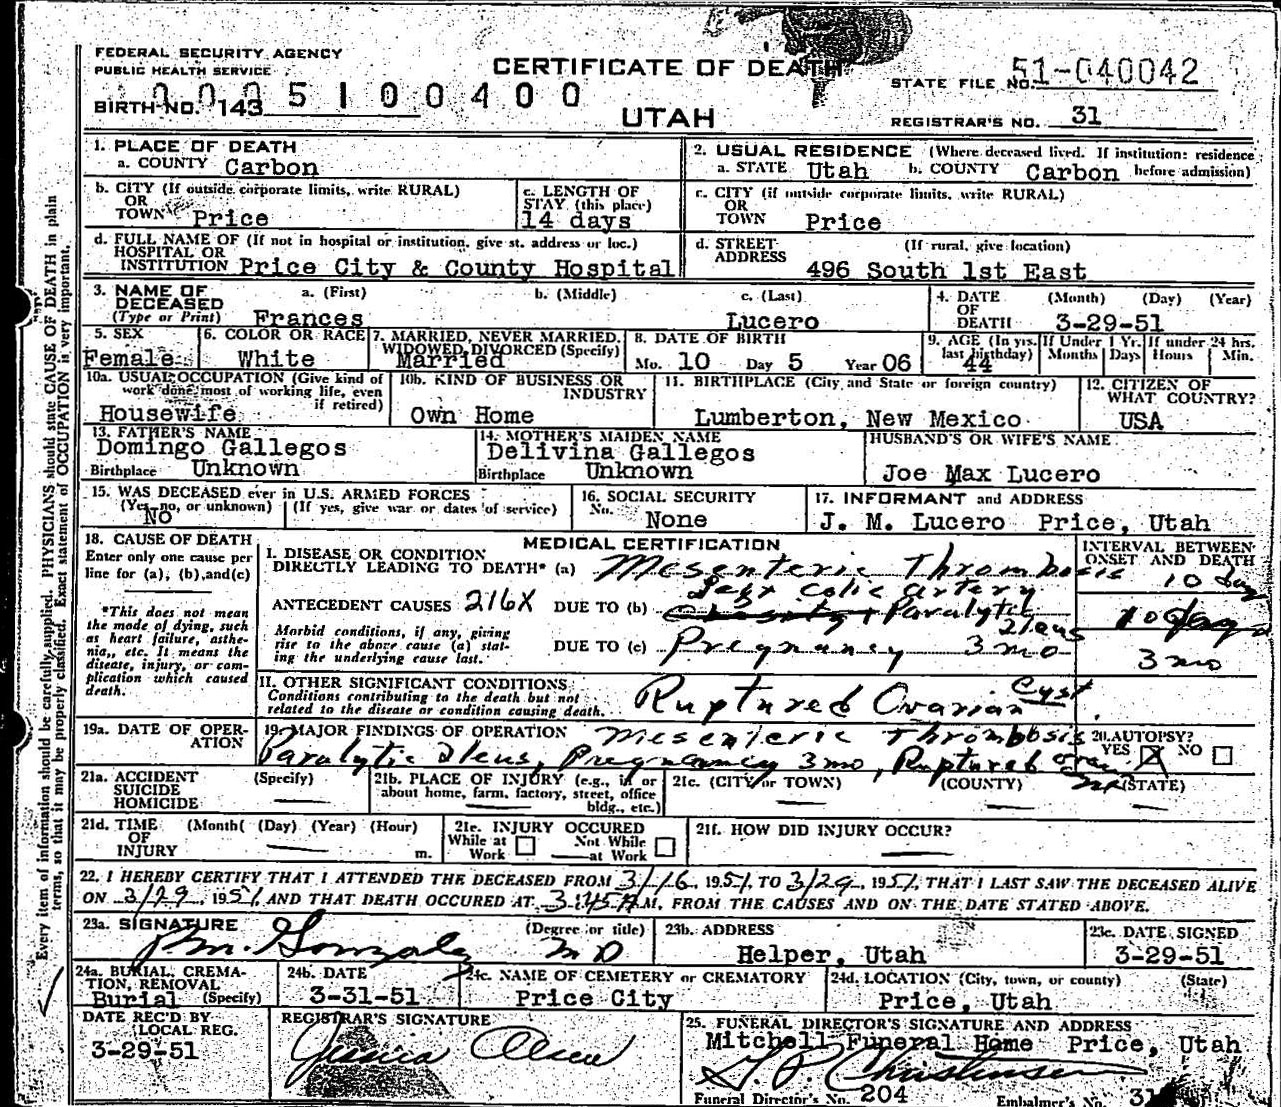 FEDERAL SECURITY AGENCY
PUBLIC HEALTH SERVICE
CERTIFICATE OF DEATH
STATE FILE NO. 51-040042
0005100400
BIRTH NO. 143
UTAH
REGISTRAR'S NO. 31
1. PLACE OF DEATH
a. COUNTY Carbon
2. USUAL RESIDENCE (Where deceased lived. If institution: residence before admission)
a. STATE Utah b. COUNTY Carbon
b. CITY (If outside corporate limits, write RURAL)
OR
TOWN Price
c. LENGTH OF
STAY (this place)
14 days
c. CITY (if outside corporate limits, write RURAL)
OR
TOWN Price
d. FULL NAME OF (If not in hospital or institution, give st. address or loc.)
HOSPITAL OR
INSTITUTION Price City & County Hospital
d. STREET (If rural, give location)
ADDRESS
496 South 1st East
3. NAME OF
DECEASED
(Type or Print)
a. (First) b. (Middle) c. (Last)
Frances Lucero
4. DATE (Month) (Day) (Year)
OF
DEATH 3-29-51
5. SEX
Female
6. COLOR OR RACE
White
7. MARRIED, NEVER MARRIED,
WIDOWED, DIVORCED (Specify)
Married
8. DATE OF BIRTH
Mo. 10 Day 5 Year 06
9. AGE (In yrs. last birthday)
44
If Under 1 Yr.
Months Days
If under 24 hrs.
Hours Min.
10a. USUAL OCCUPATION (Give kind of
work done most of working life, even
if retired)
Housewife
10b. KIND OF BUSINESS OR
INDUSTRY
Own Home
11. BIRTHPLACE (City and State or foreign country)
Lumberton, New Mexico
12. CITIZEN OF
WHAT COUNTRY?
USA
13. FATHER'S NAME
Domingo Gallegos
Birthplace Unknown
14. MOTHER'S MAIDEN NAME
Delivina Gallegos
Birthplace Unknown
HUSBAND'S OR WIFE'S NAME
Joe Max Lucero
15. WAS DECEASED ever in U.S. ARMED FORCES
(Yes, no, or unknown) (If yes, give war or dates of service)
No
16. SOCIAL SECURITY
No. None
17. INFORMANT and ADDRESS
J. M. Lucero Price, Utah
18. CAUSE OF DEATH
Enter only one cause per
line for (a), (b), and (c)
*This does not mean
the mode of dying, such
as heart failure, asthe-
nia, etc. It means the
disease, injury, or com-
plication which caused
death.
MEDICAL CERTIFICATION
INTERVAL BETWEEN
ONSET AND DEATH
I. DISEASE OR CONDITION
DIRECTLY LEADING TO DEATH* (a) Mesenteric Thrombosis 10 day
colic artery
ANTECEDENT CAUSES 216X DUE TO (b) Paralytic
Ileus
10 days
Morbid conditions, if any, giving
rise to the above cause (a) stat-
ing the underlying cause last.
DUE TO (c) Pregnancy 3 mo 3 mo
II. OTHER SIGNIFICANT CONDITIONS
Conditions contributing to the death but not
related to the disease or condition causing death.
Ruptured Ovarian Cyst
19a. DATE OF OPER-
ATION
19. MAJOR FINDINGS OF OPERATION Mesenteric Thrombosis
Paralytic Ileus, Pregnancy 3 mo, Ruptured
20. AUTOPSY?
YES X NO
21a. ACCIDENT (Specify)
SUICIDE
HOMICIDE
21b. PLACE OF INJURY (e.g., in or
about home, farm, factory, street, office
bldg., etc.)
21c. (CITY or TOWN) (COUNTY) (STATE)
21d. TIME (Month( (Day) (Year) (Hour)
OF
INJURY m.
21e. INJURY OCCURED
While at Not While
Work at Work
21f. HOW DID INJURY OCCUR?
22. I HEREBY CERTIFY THAT I ATTENDED THE DECEASED FROM 3/16, 1951, TO 3/29, 1951, THAT I LAST SAW THE DECEASED ALIVE
ON 3/29, 1951 AND THAT DEATH OCCURED AT 3:45 A M, FROM THE CAUSES AND ON THE DATE STATED ABOVE.
23a. SIGNATURE (Degree or title)
MD
23b. ADDRESS
Helper, Utah
23c. DATE SIGNED
3-29-51
24a. BURIAL, CREMA-
TION, REMOVAL
Burial (Specify)
24b. DATE
3-31-51
24c. NAME OF CEMETERY or CREMATORY
Price City
24d. LOCATION (City, town, or county) (State)
Price, Utah
DATE REC'D BY
LOCAL REG.
3-29-51
REGISTRAR'S SIGNATURE
Jessica Olsen
25. FUNERAL DIRECTOR'S SIGNATURE AND ADDRESS
Mitchell Funeral Home Price, Utah
Christensen
Funeral Director's No. 204 Embalmer's No. 31
Every item of information should be carefully supplied. PHYSICIANS should state CAUSE OF DEATH in plain
terms, so that it may be properly classified. Exact statement of OCCUPATION is very important.